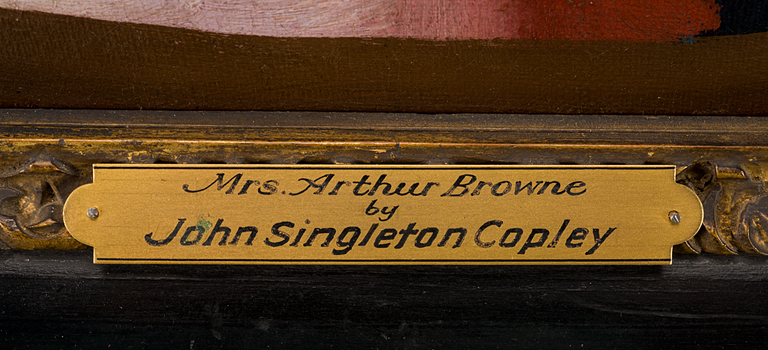 Mrs. Arthur Browne
by
John Singleton Copley